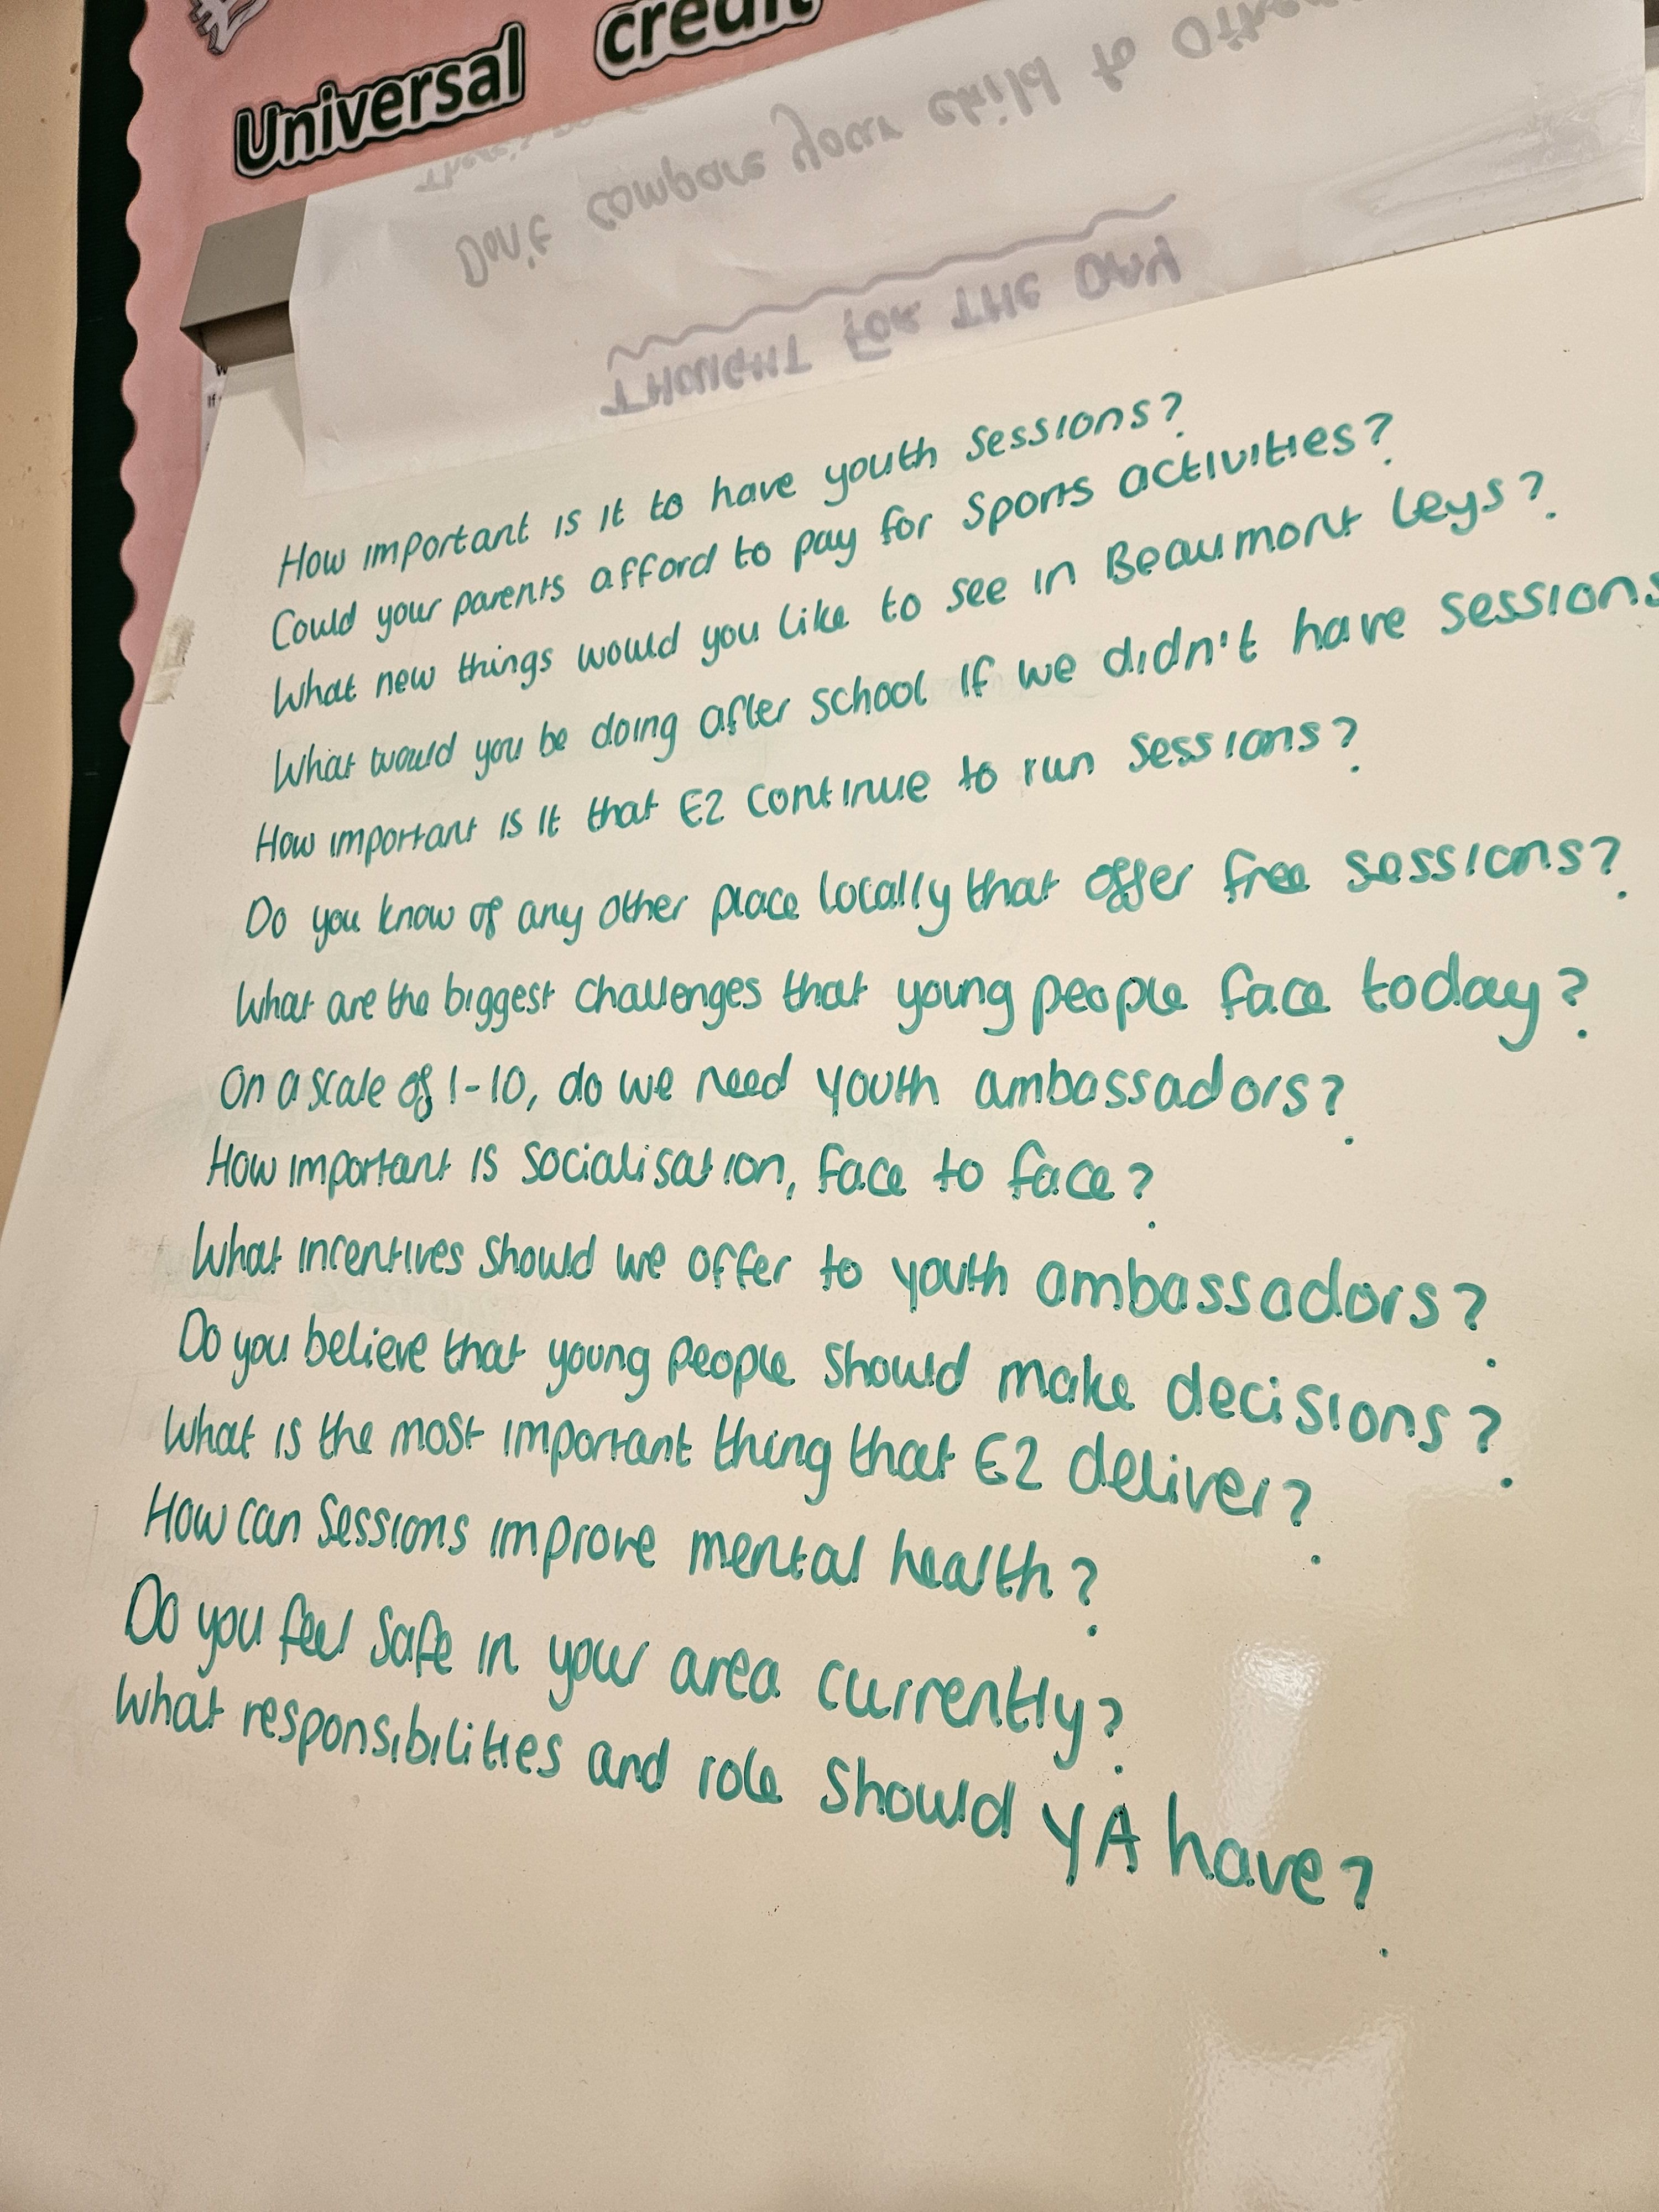 Universal credit
There's no
Don't compare your child to Others
THOUGHT FOR THE DAY
How important is it to have youth sessions?
Could your parents afford to pay for sports activities?
What new things would you like to see in Beaumont Leys?
What would you be doing after school if we didn't have sessions
How important is it that E2 continue to run sessions?
Do you know of any other place locally that offer free sessions?
What are the biggest challenges that young people face today?
On a scale of 1-10, do we need youth ambassadors?
How important is socialisation, face to face?
What incentives should we offer to youth ambassadors?
Do you believe that young people should make decisions?
What is the most important thing that E2 deliver?
How can sessions improve mental health?
Do you feel safe in your area currently?
What responsibilities and role should YA have?